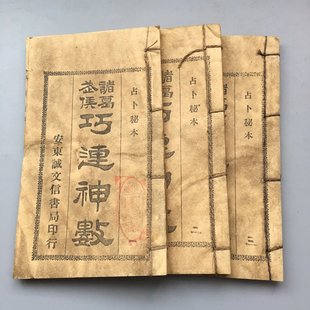 占卜祕本
諸葛武侯
巧連神數
安東誠文信書局印行
一
占卜祕本
諸葛
二
占卜祕本
三